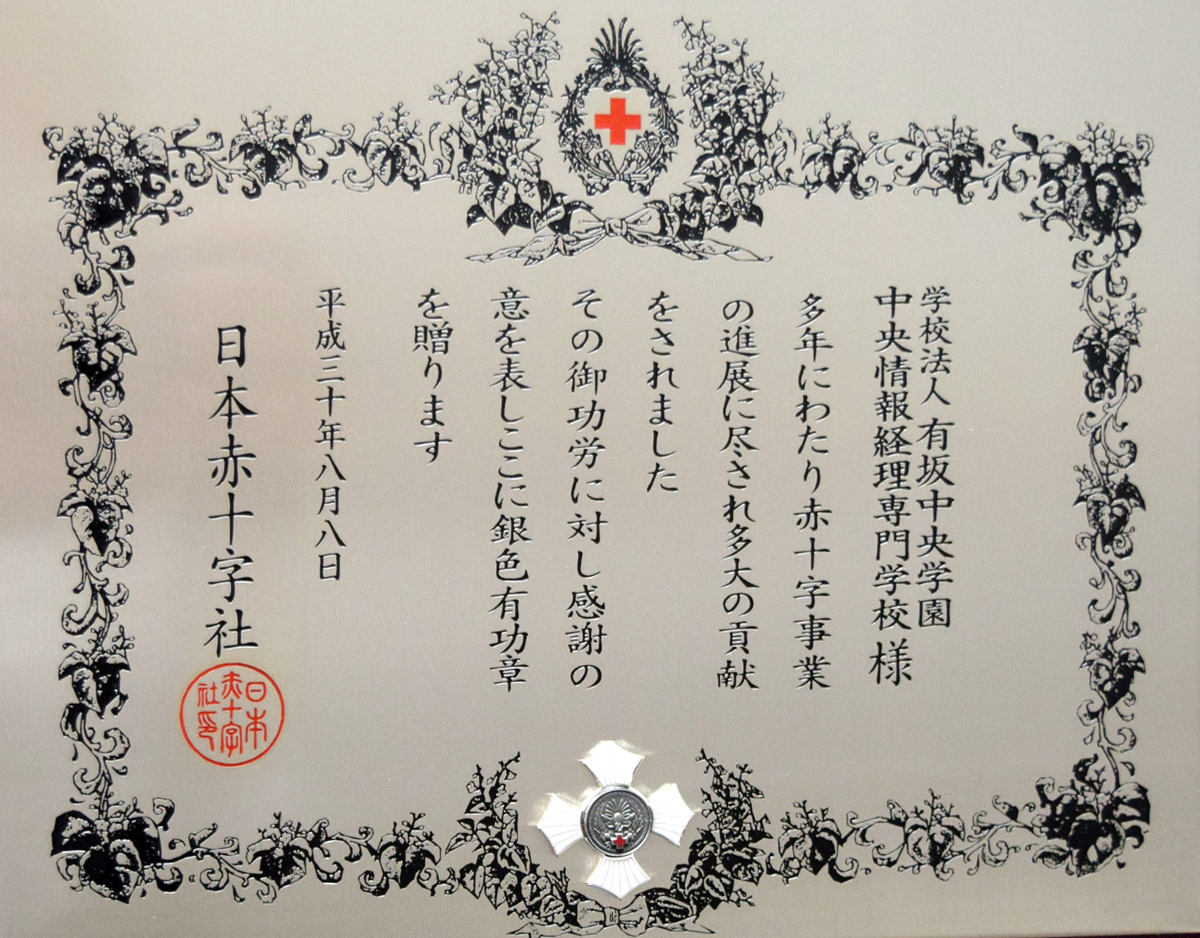 学校法人 有坂中央学園
中央情報経理専門学校 様
多年にわたり赤十字事業
の進展に尽され多大の貢献
をされました
その御功労に対し感謝の
意を表しここに銀色有功章
を贈ります
平成三十年八月八日
日本赤十字社
日本
赤十字
社印